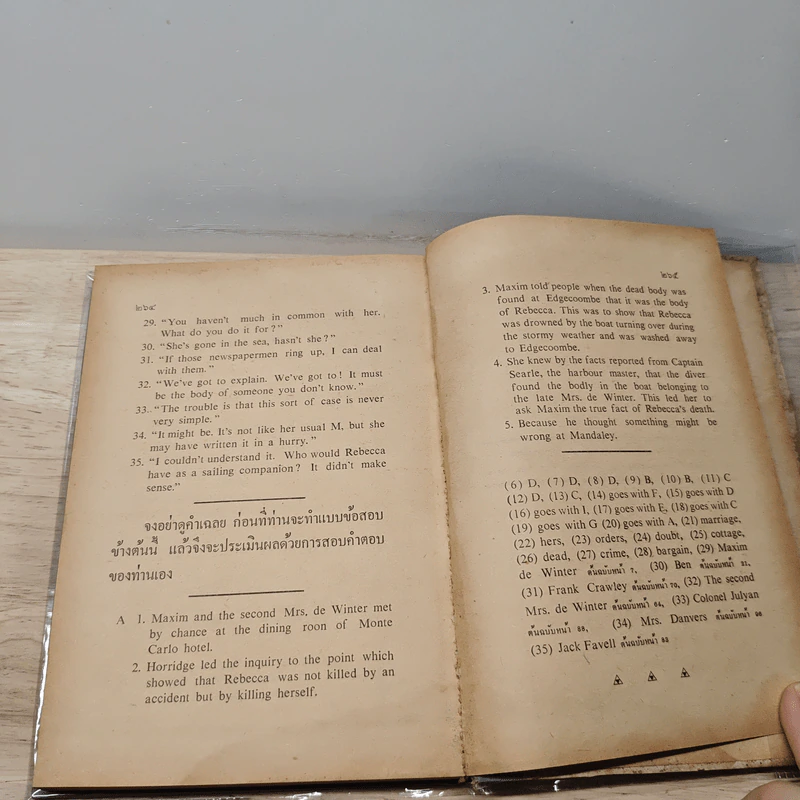 ๒๖๔
29. "You haven't much in common with her.
What do you do it for?"
30. "She's gone in the sea, hasn't she?"
31. "If those newspapermen ring up, I can deal
with them."
32. "We've got to explain. We've got to! It must
be the body of someone you don't know."
33. "The trouble is that this sort of case is never
very simple."
34. "It might be. It's not like her usual M, but she
may have written it in a hurry."
35. "I couldn't understand it. Who would Rebecca
have as a sailing companion? It didn't make
sense."
จงอย่าดูคำเฉลย ก่อนที่ท่านจะทำแบบข้อสอบ
ข้างต้นนี้ แล้วจึงจะประเมินผลด้วยการสอบคำตอบ
ของท่านเอง
A 1. Maxim and the second Mrs. de Winter met
by chance at the dining roon of Monte
Carlo hotel.
2. Horridge led the inquiry to the point which
showed that Rebecca was not killed by an
accident but by killing herself.
๒๖๕
3. Maxim told people when the dead body was
found at Edgecoombe that it was the body
of Rebecca. This was to show that Rebecca
was drowned by the boat turning over during
the stormy weather and was washed away
to Edgecoombe.
4. She knew by the facts reported from Captain
Searle, the harbour master, that the diver
found the bodily in the boat belonging to
the late Mrs. de Winter. This led her to
ask Maxim the true fact of Rebecca's death.
5. Because he thought something might be
wrong at Mandaley.
(6) D, (7) D, (8) D, (9) B, (10) B, (11) C
(12) D, (13) C, (14) goes with F, (15) goes with D
(16) goes with I, (17) goes with E, (18) goes with C
(19) goes with G (20) goes with A, (21) marriage,
(22) hers, (23) orders, (24) doubt, (25) cottage,
(26) dead, (27) crime, (28) bargain, (29) Maxim
de Winter ต้นฉบับหน้า (30) Ben ต้นฉบับหน้า
(31) Frank Crawley ต้นฉบับหน้า (32) The second
Mrs. de Winter ต้นฉบับหน้า (33) Colonel Julyan
ต้นฉบับหน้า (34) Mrs. Danvers ต้นฉบับหน้า
(35) Jack Favell ต้นฉบับหน้า